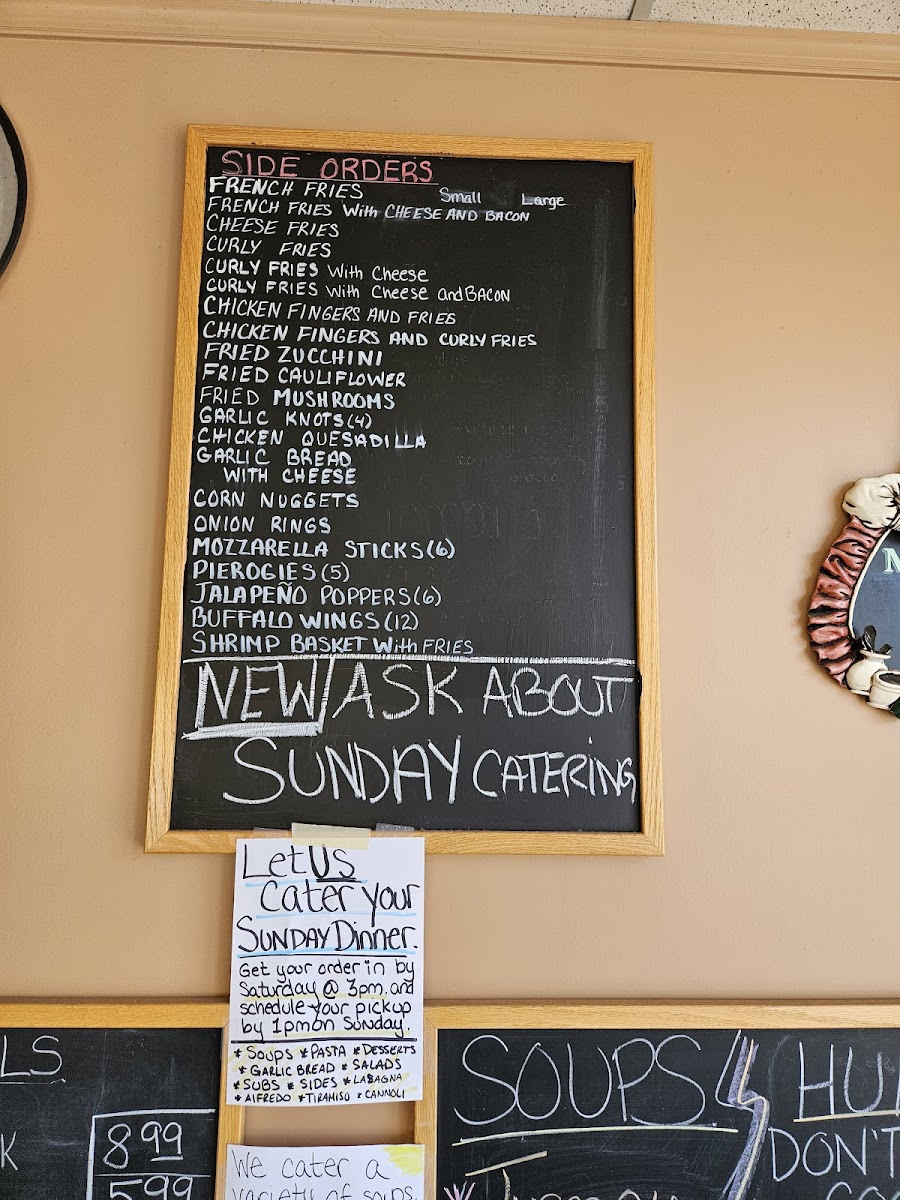 SIDE ORDERS
FRENCH FRIES Small Large
FRENCH FRIES With CHEESE AND BACON
CHEESE FRIES
CURLY FRIES
CURLY FRIES With Cheese
CURLY FRIES With Cheese and BACON
CHICKEN FINGERS AND FRIES
CHICKEN FINGERS AND CURLY FRIES
FRIED ZUCCHINI
FRIED CAULIFLOWER
FRIED MUSHROOMS
GARLIC KNOTS (4)
CHICKEN QUESADILLA
GARLIC BREAD
WITH CHEESE
CORN NUGGETS
ONION RINGS
MOZZARELLA STICKS (6)
PIEROGIES (5)
JALAPEÑO POPPERS (6)
BUFFALO WINGS (12)
SHRIMP BASKET With FRIES
NEW ASK ABOUT
SUNDAY CATERING
Let Us
Cater your
SUNDAY Dinner.
Get your order in by
Saturday @ 3pm. and
schedule your pickup
by 1pm on Sunday.
* SOUPS * PASTA * DESSERTS
* GARLIC BREAD * SALADS
* SUBS * SIDES * LASAGNA
* AlFREDO * TIRAMISU * CANNOLI
We cater a
variety of soups.
LS
K 8 99
5 99
SOUPS
HU
DON'T
N